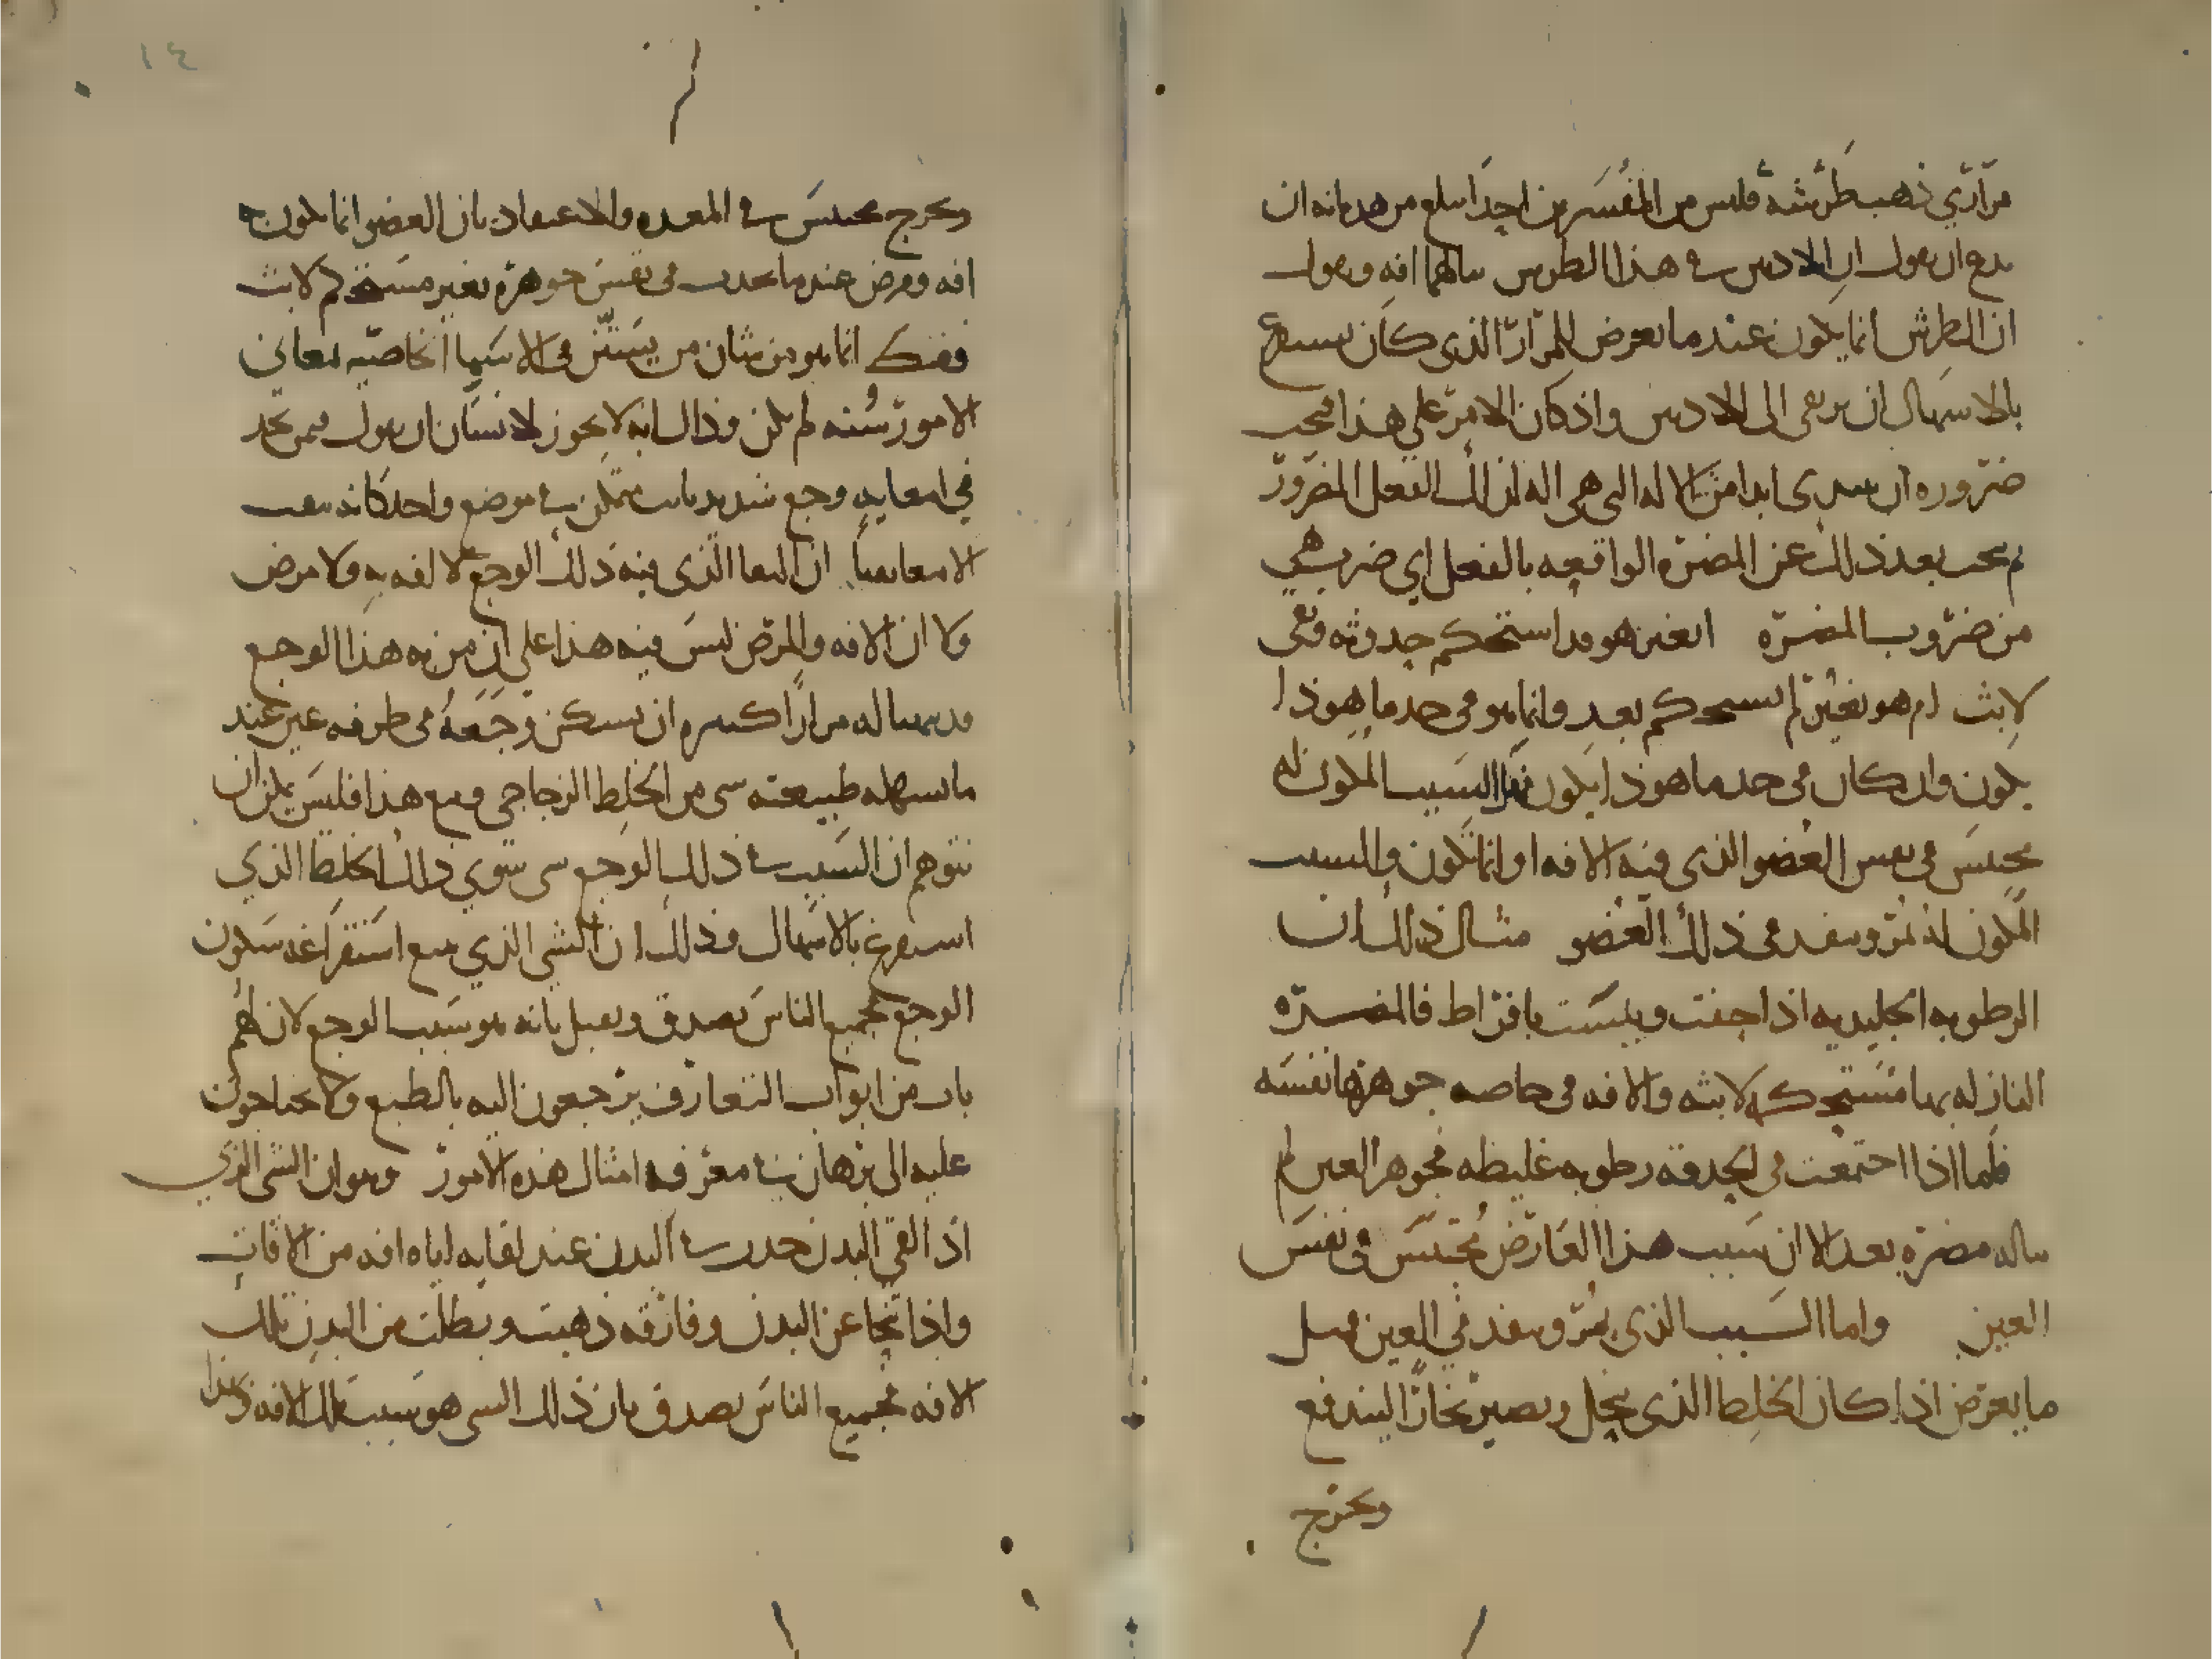 مراري ذهب طرشه فليس من المفسرين احدا سلع من هديانه ان
يدع ان يقول ان الاذنين في هذا الطرش نالهما افه ويقول
ان الطرش انما يكون عندما يعرض للمرار الذي كان يستفرغ
بالاسهال ان يرتقي الى الاذنين واذ كان الامر على هذا فيجب
ضروره ان يبتدي ابدا من الاله التي هي اله لذلك الفعل المضرور
ثم يبحث بعد ذلك عن المضره الواقعه بالفعل اي ضرب هي
من ضروب المضره اتغير هو قد استحكم حدوثه وبقي
لابث ام هو تغير لم يستحكم بعد وانما هو في حد ما هوذا
يكون وان كان في حد ما هوذا يكون فهل السبب المكون له
محتبس في نفس العضو الذي فيه الافه او انما تكون والسبب
المكون له يمر وينفد في ذلك العضو مثال ذلك ان
الرطوبه الجليديه اذا جفت ويبست بافراط فالمضره
النازله بها مستحكمه لابثه والافه في خاصه جوهرها نفسه
فلما اذا اجتمعت في الحدقه رطوبه غليظه فجوهر العين لم
يناله مضره بعد الا ان سبب هذا العارض محتبس في نفس
العين واما السبب الذي يمر وينفد في العين فمثل
ما يعرض اذا كان الخلط الذي ينحل ويصير بخارا ليندفع
ويخرج
١٤
ويخرج محتبس في المعده والاعتقاد بان العضو انما يكون به
افه ومرض عندما يحدث في نفس جوهره تغير مستحكم لابث
فقط انما هو من شان من يستنن في الاسما الخاصيه لمعاني
الامور سننه لم يكن وذلك انه لا يجوز لانسان ان يقول فيمن يجد
في امعايه وجع شديد ثابت متمكن في موضع واحد كانه يثقب
الامعا ثقبا ان المعا الذي فيه ذلك الوجع لا افه به ولا مرض
ولا ان الافه والمرض ليس فيه هذا على ان من به هذا الوجع
قد يتهيا له مرارا كثيره ان يسكن وجعه في طرفه عين عند
ما تسهله طبيعته شي من الخلط الزجاجي ومع هذا فليس يمكن ان
نتوهم ان السبب في ذلك الوجع شي سوي ذلك الخلط الذي
استفرغ بالاسهال وذلك ان الشي الذي مع استفراغه سكون
الوجع فجميع الناس يصدق ويقبل بانه هو سبب الوجع لان لهم
باب من ابواب التعارف يرجعون اليه بالطبع ولا يحتاجون
عليه الى برهان في معرفه امثال هذه الامور وهو ان الشي الذي
اذا لقي البدن حدث في البدن عند لقايه اياه افه من الافات
واذا تنحا عن البدن وفارقه ذهبت وبطلت من البدن تلك
الافه فجميع الناس يصدق بان ذلك الشي هو سبب تلك الافه وهذا